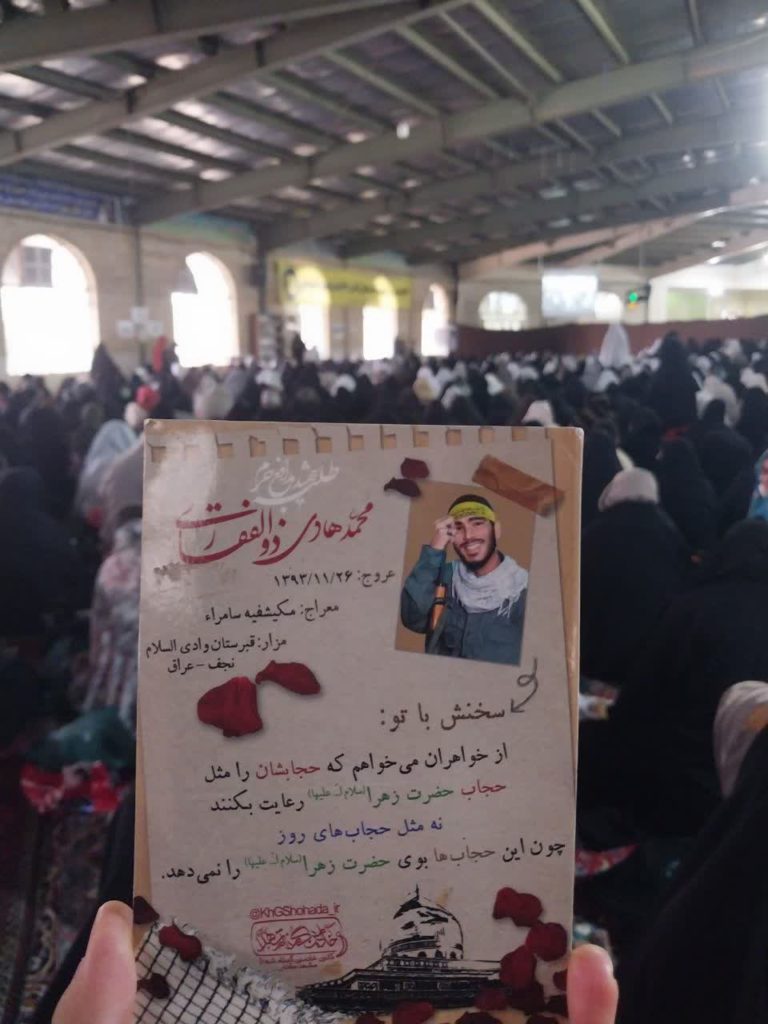 طلبه شهید مدافع حرم
محمدهادی ذوالفقاری
عروج: ۱۳۹۳/۱۱/۲۶
معراج: مکیشفیه سامراء
مزار: قبرستان وادی السلام
نجف - عراق
سخنش با تو:
از خواهران می‌خواهم که حجابشان را مثل
حجاب حضرت زهرا(سلام الله علیها) رعایت بکنند
نه مثل حجاب‌های روز
چون این حجاب‌ها بوی حضرت زهرا(سلام الله علیها) را نمی‌دهد.
@KhGShohada_ir